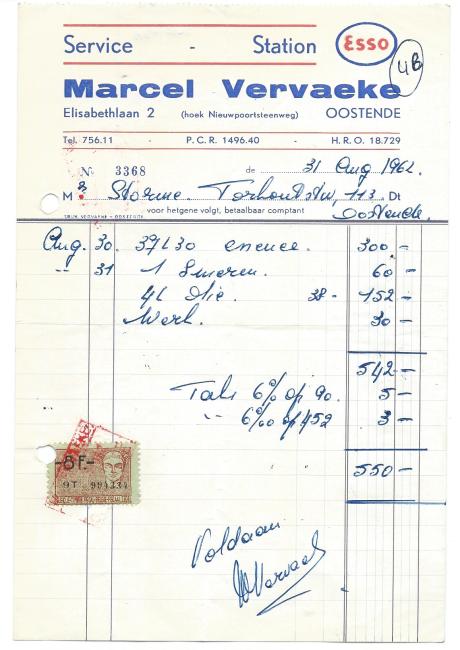 Service - Station Esso
4B
Marcel Vervaeke
Elisabethlaan 2 (hoek Nieuwpoortsteenweg) OOSTENDE
Tel. 756.11 - P.C.R. 1496.40 - H.R.O. 18.729
№ 3368 de 31 Aug 1962.
M Storme. Torhoutstw, 113. Dt
voor hetgene volgt, betaalbaar comptant Oostende.
DRUK. VERVAEKE - OOSTENDE
Aug. 30. 37L30 essence. 300 -
-- 31 1 Smeren. 60 -
4L Olie. 38 - 152 -
Werk. 30 -
542 -
Taks 6% op 90. 5 -
-- 6‰ op 452 3 -
550 -
-8F.-
9T 994334
Voldaan